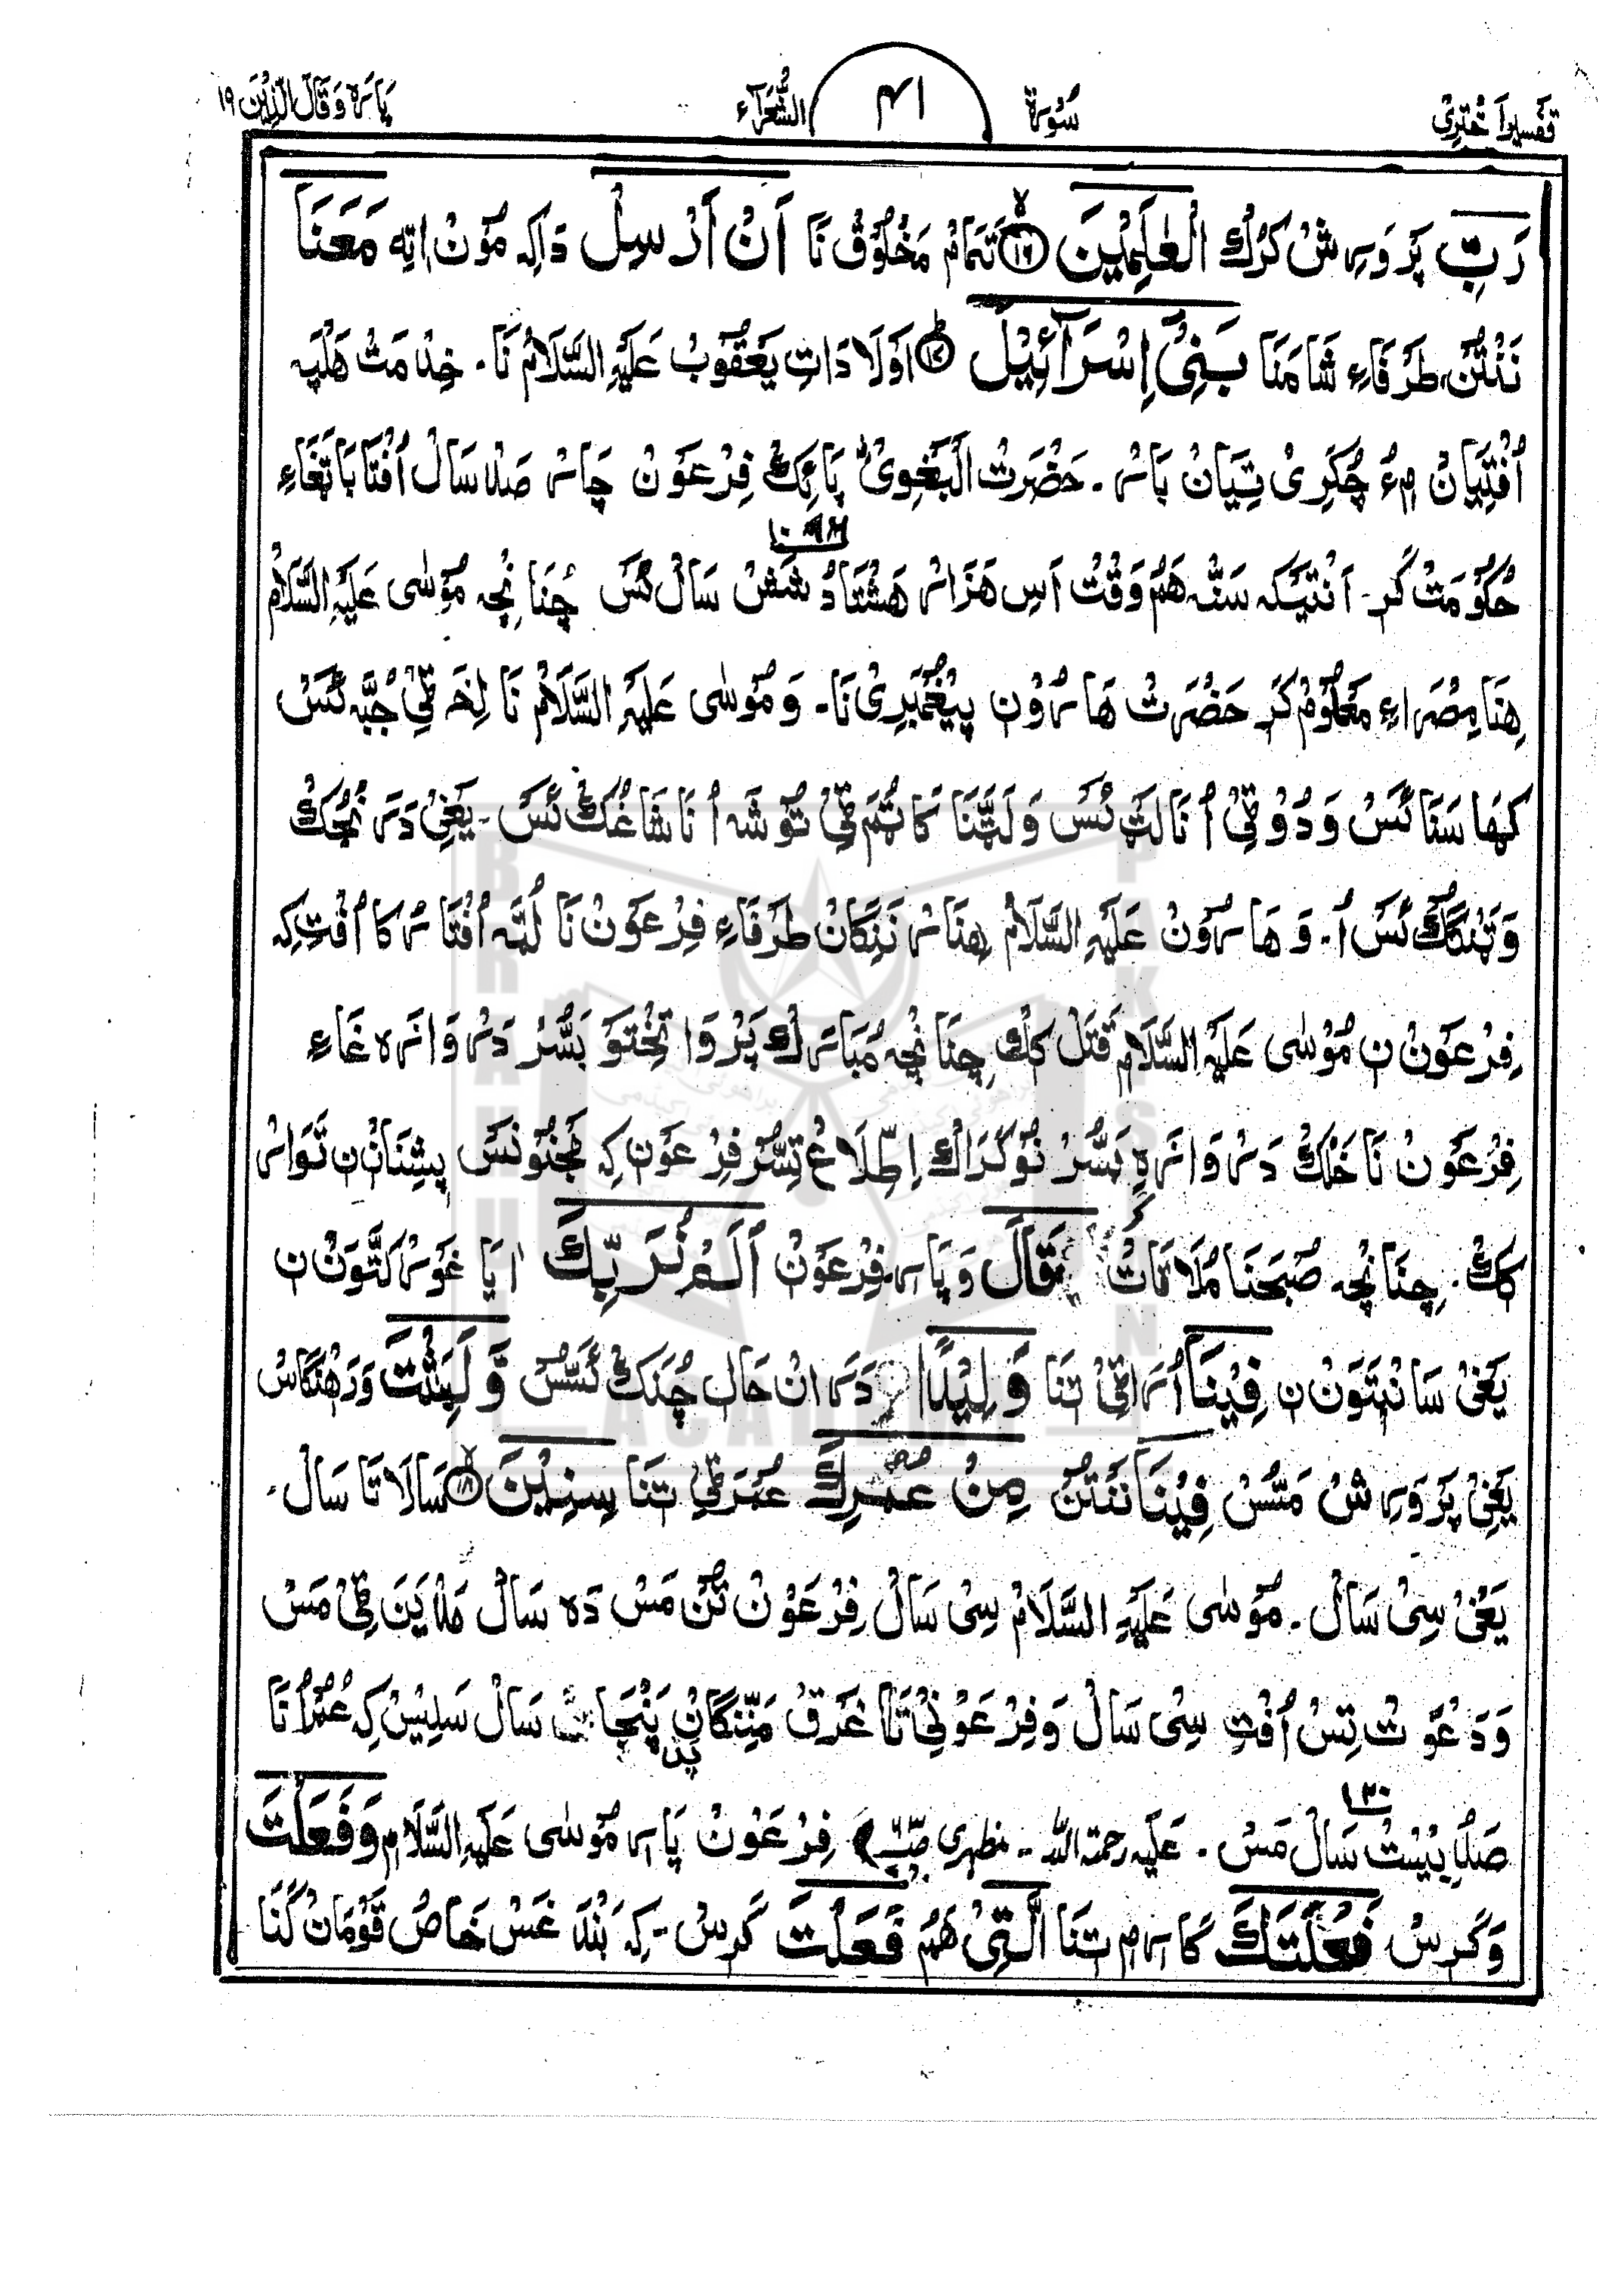 تفسیر اختری سُوۡرَۃ ٤١ الشُّعَرَآء پَارَہ وَقَالَ الَّذِیۡنَ ١٩
رَبِّ پَرۡوَرِش کَرُك الۡعٰلَمِیۡنَ ﴿١٦﴾ تَمَامۡ مَخۡلُوۡقۡ نَا اَنۡ اَرۡسِلۡ دَاکِہ مُوۡنۡ اِتِہ مَعَنَا
نَنۡتُنۡ، طَرۡفَاءِ شَامَنَا بَنِیۡۤ اِسۡرَآئِیۡلَ ﴿١٧﴾ اَوۡلَادَاتِ یَعۡقُوۡبۡ عَلَیۡہِ السَّلَامۡ نَا۔ خِدۡمَتۡ ھَلۡپَہ
اُفۡتِیَانۡ مءُ چُکَرِیۡ تِیَانۡ پَارۡ۔ حَضۡرَتۡ الۡبَغَوِیۡ پَائِكۡ فِرۡعَوۡنۡ چَارۡ صَدۡ سَالۡ اُفۡتَا بَاتَغَاءِ
١٠٨٦
حُکُوۡمَتۡ کَرۡ۔ اَنۡتَیۡکَہ سَنۡہ ھَمۡ وَقۡتۡ اَسِ ھَزَارۡ ھَشۡتَادُ شَشۡ سَالۡ ئَسۡ چُنَانِچِہ مُوۡسٰی عَلَیۡہِ السَّلَامۡ
ھِنَا مِصۡرَاءِ مَعۡلُوۡمۡ کَرۡ حَضۡرَتۡ ھَارُوۡنۡ پَیۡغَمۡبَرِیۡ نَا۔ وَ مُوۡسٰی عَلَیۡہِ السَّلَامۡ نَا لِخَہ ٹِیۡ جُبَّہ ئَسۡ
کَھَاسَنَا ئَسۡ وَ دُوۡ ٹِیۡ اُنَا لَٹۡ ئَسۡ وَ لَٹَّنَا کَاٹُمۡ ٹِیۡ تُوۡشَہ اُنَا شَاغُكۡ ئَسۡ۔ یَعۡنِیۡ دَرَنۡجُكۡ
وَتَھَنۡگُكۡ ئَسۡ اُ۔ وَ ھَارُوۡنۡ عَلَیۡہِ السَّلَامۡ ھِنَارۡ نَنۡکَانۡ طَرۡفَاءِ فِرۡعَوۡنۡ نَا لُپَّہ اُفۡتَا رَکَا اُفۡتِ کِہ
فِرۡعَوۡنۡ نِ مُوۡسٰی عَلَیۡہِ السَّلَامۡ قَتۡلۡ کَرۡك چِنَانۡچِہ مُبَارَكۡ پَرۡوَا تَخۡتَوۡ بَسُّرۡ دَرۡوَازَہ غَاءِ
فِرۡعَوۡنۡ نَا خَلۡكۡ دَرۡوَازَہِ بَسُّرۡ نُوۡکَرَاكۡ اِطِّلَاعۡ تِسُّرۡ فِرۡعَوۡنِ کِہ مَجۡنُوۡنَسۡ پِیۡشَانۡ نِ تَوَارۡ
کَكۡ۔ چِنَانۡچِہ صُبَحَنَا مُلَاقَاتۡ قَالَ وَ پَارۡ فِرۡعَوۡنۡ اَلَمۡ نُرَبِّكَ اٰیَا غَوۡرۡ کَتَّوَنۡ نِ
یَعۡنِیۡ سَانۡبَتَوَنۡ نِ فِیۡنَا اُرَاٹِیۡ تَنَا وَلِیۡدًا دَرۡ اَنۡ حَالۡ چُنَكۡ ئَسُّسۡ وَّلَبِثۡتَ وَرَھۡنۡگَاسۡ
یَعۡنِیۡ پَرۡوَرِشۡ مَسُّسۡ فِیۡنَا نَنۡتُنۡ مِنۡ عُمُرِكَ عُمَرۡ ٹِیۡ تَنَا سِنِیۡنَ ﴿١٨﴾ سَالَاتَا سَالۡ۔
یَعۡنِیۡ سِیۡ سَالۡ۔ مُوۡسٰی عَلَیۡہِ السَّلَامۡ سِیۡ سَالۡ فِرۡعَوۡنۡ تُنۡ مَسۡ دَہ سَالۡ مَدۡیَنَ ٹِیۡ مَسۡ
وَ دَعۡوَتۡ تِسۡ اُفۡتِ سِیۡ سَالۡ وَ فِرۡعَوۡنِیۡ تَا غَرَقۡ مَنِّنۡگَانۡ پَدۡ پَنۡجَاہ سَالۡ سَلِیۡسۡ کِہ عُمۡرۡ اُنَا
١٢٠
صَدُ بِیۡسۡتۡ سَالۡ مَسۡ۔ عَلَیۡہِ رحمۃ اللّٰہ۔ مظہری فِرۡعَوۡنۡ پَارۡ مُوۡسٰی عَلَیۡہِ السَّلَامۡ وَفَعَلۡتَ
وَ کَرۡسۡ فَعۡلَتَكَ کَارۡمۡ تَنَا الَّتِیۡ ھَمُ فَعَلۡتَ کَرۡسۡ۔ کِہ بَنۡدَہ غَسۡ خَاصۡ قَوۡمَانۡ کَنَا